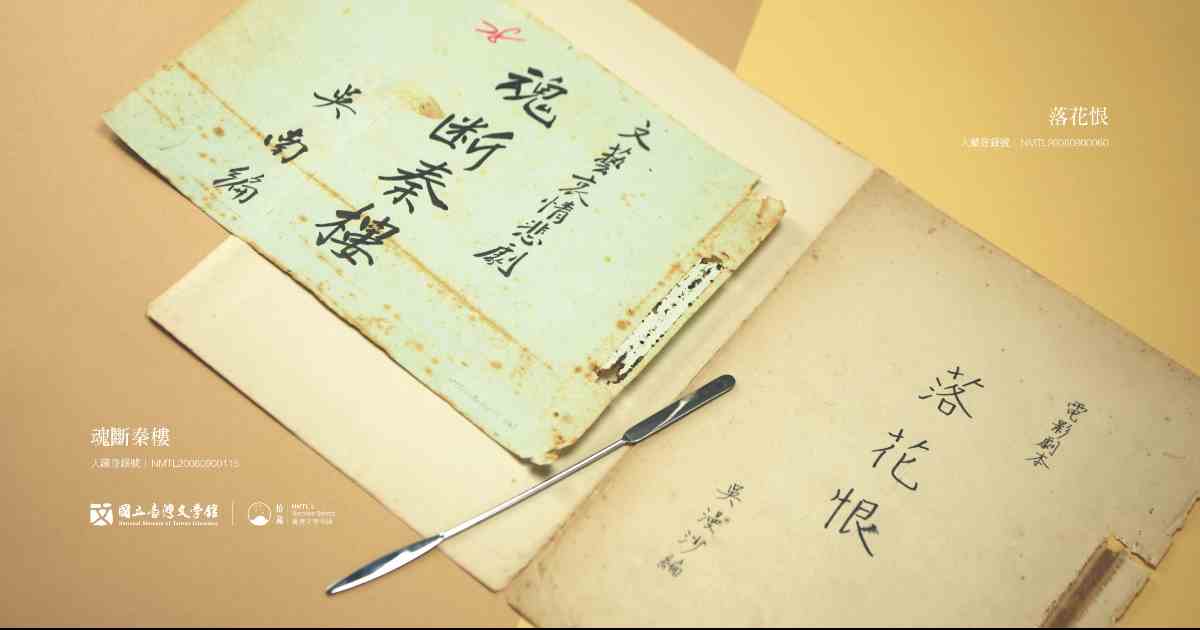 文藝哀情悲劇
魂斷秦樓
吳南編
電影劇本
落花恨
吳漫沙編
落花恨
入藏登錄號｜NMTL20060900060
魂斷秦樓
入藏登錄號｜NMTL20060900115
國立臺灣文學館
National Museum of Taiwan Literature
拾藏
NMTL's
臺灣文學物語